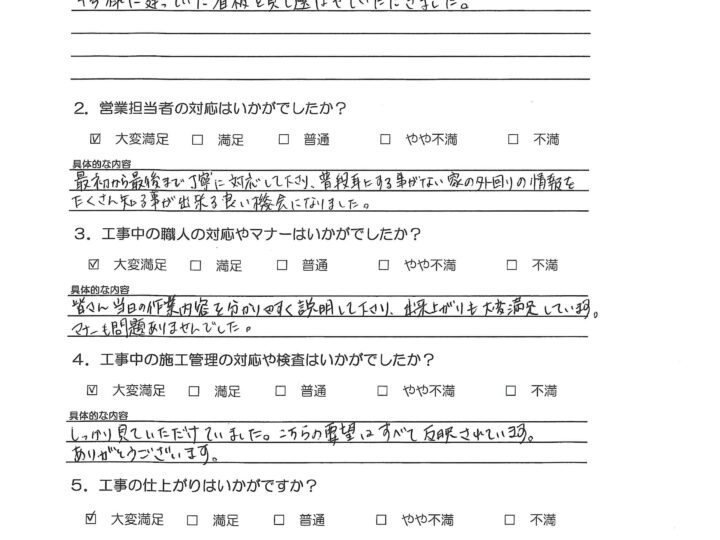 2．営業担当者の対応はいかがでしたか？
☑ 大変満足 □ 満足 □ 普通 □ やや不満 □ 不満
具体的な内容
最初から最後まで丁寧に対応して下さり、普段耳にする事がない家の外回りの情報を
たくさん知る事が出来る良い機会になりました。
3．工事中の職人の対応やマナーはいかがでしたか？
☑ 大変満足 □ 満足 □ 普通 □ やや不満 □ 不満
具体的な内容
皆さん当日の作業内容を分かりやすく説明して下さり、出来上がりも大変満足しています。
マナーも問題ありませんでした。
4．工事中の施工管理の対応や検査はいかがでしたか？
☑ 大変満足 □ 満足 □ 普通 □ やや不満 □ 不満
具体的な内容
しっかり見ていただけていました。こちらの要望はすべて反映されています。
ありがとうございます。
5．工事の仕上がりはいかがですか？
☑ 大変満足 □ 満足 □ 普通 □ やや不満 □ 不満